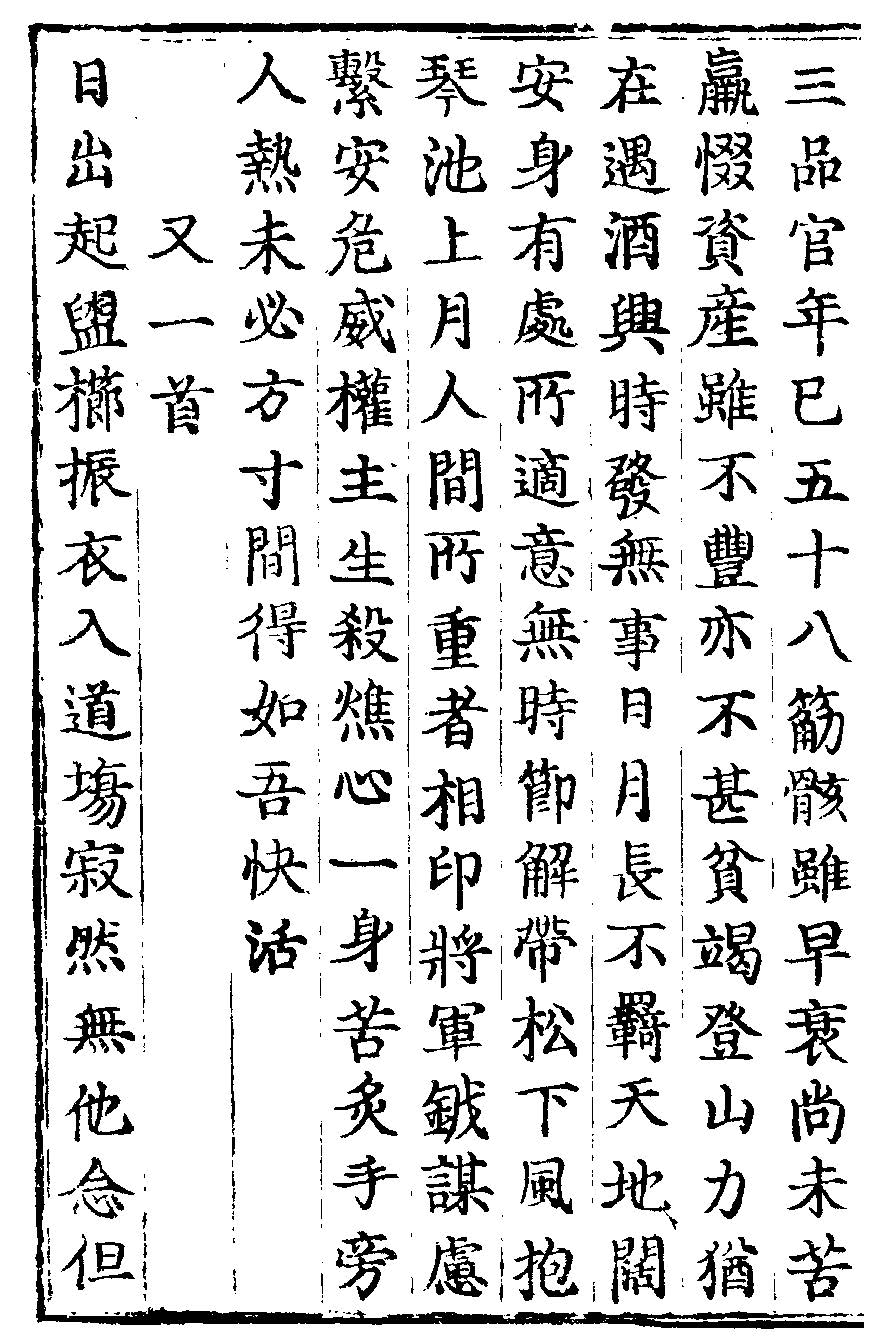 三品官年已五十八筋骸雖早衰尚未苦
羸惙資産雖不豐亦不甚貧竭登山力猶
在遇酒興時發無事日月長不羈天地闊
安身有處所適意無時節解帶松下風抱
琴池上月人間所重者相印將軍鉞謀慮
繫安危威權主生殺燋心一身苦炙手旁
人熱未必方寸間得如吾快活
又一首
日出起盥櫛振衣入道塲寂然無他念但